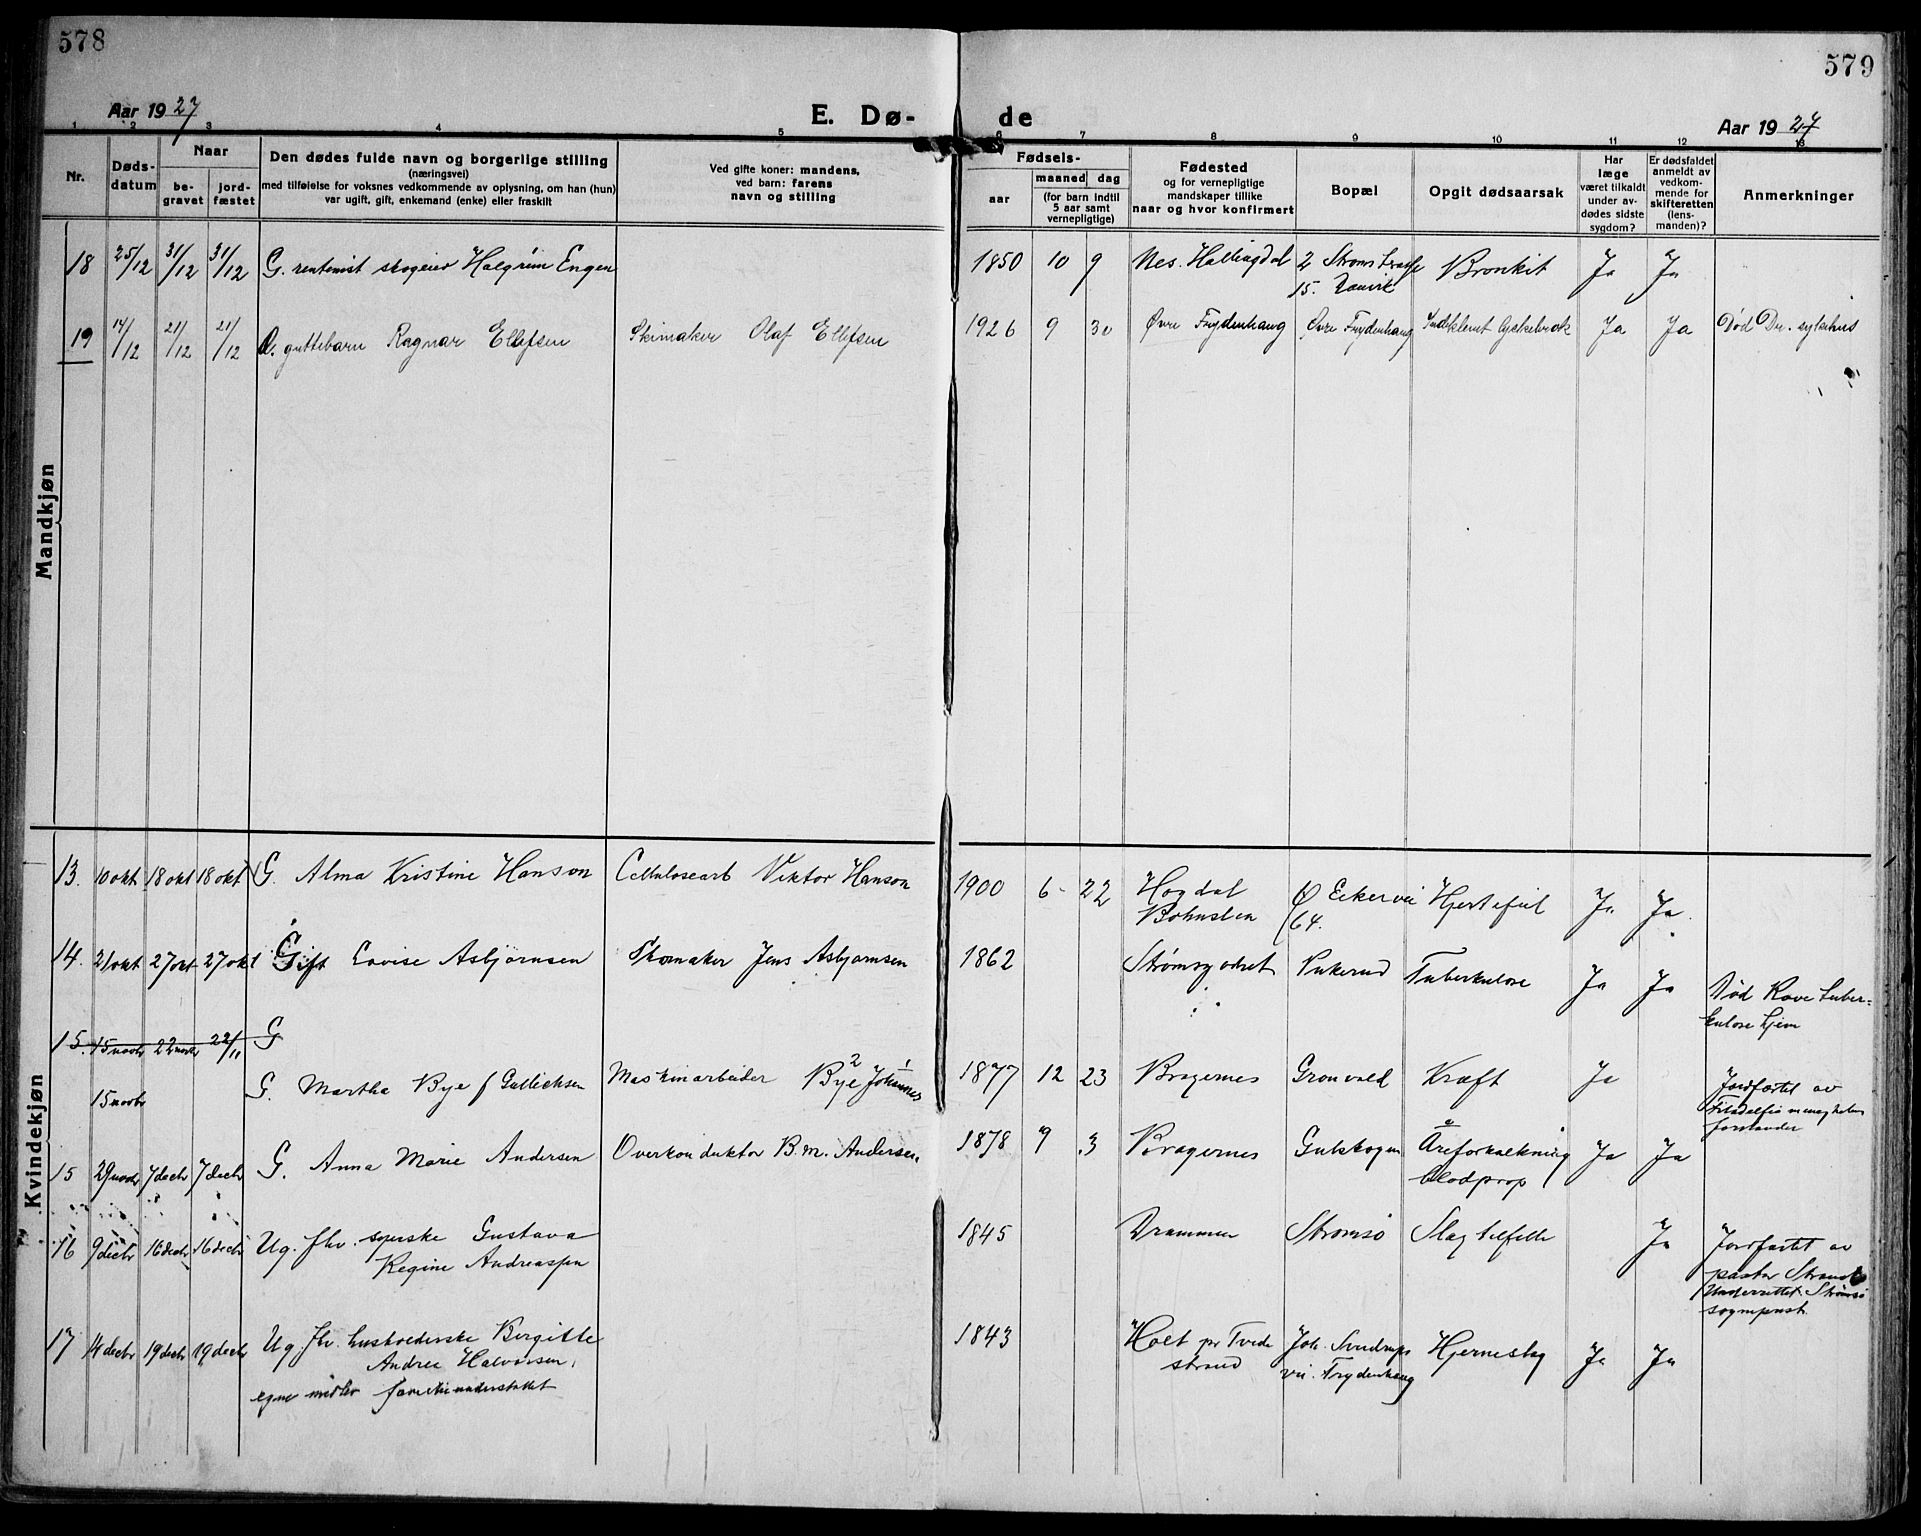 578
579
Aar 1927
E. Dø-
de
Aar 1927
1 2 3 4 5 6 7 8 9 10 11 12 13
Nr.
Døds-
datum
Naar
be-
gravet
jord-
fæstet
Den dødes fulde navn og borgerlige stilling
(næringsvei)
med tilføielse for voksnes vedkommende av oplysning, om han (hun)
var ugift, gift, enkemand (enke) eller fraskilt
Ved gifte koner: mandens,
ved barn: farens
navn og stilling
Fødsels-
aar
maaned dag
(for barn indtil
5 aar samt
vernepligtige)
Fødested
og for vernepligtige
mandskaper tillike
naar og hvor konfirmert
Bopæl
Opgit dødsaarsak
Har
læge
været tilkaldt
under av-
dødes sidste
sygdom?
Er dødsfaldet
anmeldt av
vedkom-
mende for
skifteretten
(lens-
manden)?
Anmerkninger
Mandkjøn
18 25/12 31/12 31/12 G. rentenist skogeier Halgrim Engen 1850 10 9 Nes. Hallingdal 2 Strøms terasse Bronkit Ja Ja
15. Danvik
19 14/12 21/12 21/12 guttebarn Ragnar Ellefsen Skimaker Olaf Ellefsen 1926 9 30 Øvre Frydenhaug Øvre Frydenhaug Indeklemt Ja Ja Død Dr. sykehus
Kvindekjøn
13. 10 okt 18 okt 18 okt G. Alma Kristine Hanson Cellulosearb Viktor Hanson 1900 6 22 Hogdal Ø Eikervei Hjertefeil Ja Ja
Bohuslen 64.
14. 21 okt 27 okt 27 okt Gift Lovise Asbjørnsen Skomaker Jens Asbjørnsen 1862 Strømsgodset Pukerud Tuberkulose Ja Ja Død Rove tuber-
kulosehjem
15. 15 novbr 22 novbr 22/11 G
15 novbr G. Martha Bye f Gullichsen Maskinarbeider Bye 2 Johannes 1 1877 12 23 Bragernes Grønvold Kræft Ja Jordfæstet av
Filadelfia menighetens
forstander
15 29 novbr 7 decbr 7 decbr G. Anna Marie Andersen Overkonduktør B.M. Andersen 1878 9 3 Bragernes Gulskogen Åreforkalkning Ja Ja
blodprop
16 9 decbr 16 decbr 16 decbr Ug. fhv. syerske Gustava 1845 Drammen Strømsø Slagtilfelle Ja Jordfæstet av
Regine Andreassen pastor Strand
Underrettet Strømsø
sogneprest
17 14 decbr 19 decbr 19 decbr Ug. fhv. husholderske Bergitte 1843 Holt pr Tvede Joh. Sverdrups Hjerneslag Ja Ja
Andrea Halvorsen, strand vei. Frydenhaug
egne midler